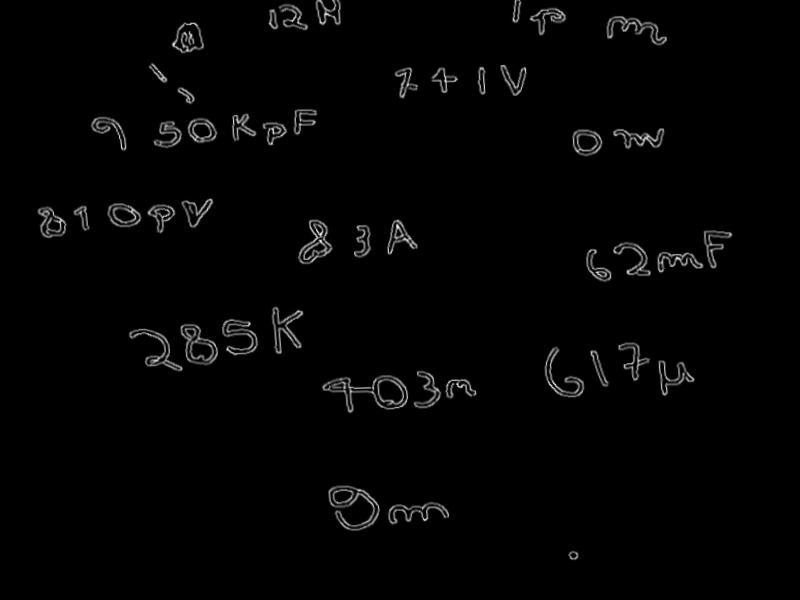 12H
1p m
7+1V
9 50KpF
0 m
810pV
83A
62mF
285K
403m
617μ
9m